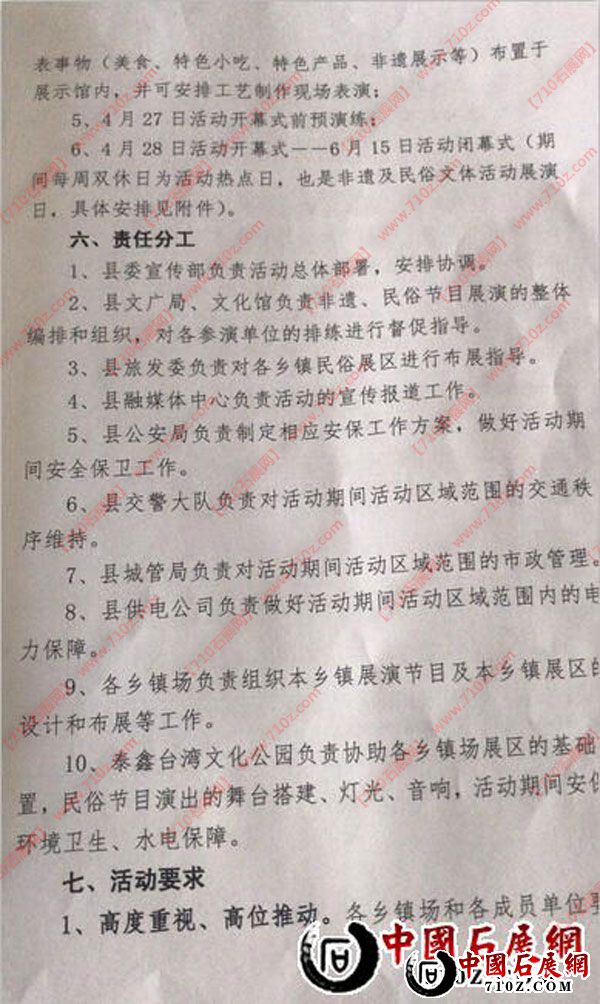 表事物（美食、特色小吃、特色产品、非遗展示等）布置于
展示馆内，并可安排工艺制作现场表演；
5、4月27日活动开幕式前预演练；
6、4月28日活动开幕式——6月15日活动闭幕式（期
间每周双休日为活动热点日，也是非遗及民俗文体活动展演
日，具体安排见附件）。
六、责任分工
1、县委宣传部负责活动总体部署，安排协调。
2、县文广局、文化馆负责非遗、民俗节目展演的整体
编排和组织，对各参演单位的排练进行督促指导。
3、县旅发委负责对各乡镇民俗展区进行布展指导。
4、县融媒体中心负责活动的宣传报道工作。
5、县公安局负责制定相应安保工作方案，做好活动期
间安全保卫工作。
6、县交警大队负责对活动期间活动区域范围的交通秩
序维持。
7、县城管局负责对活动期间活动区域范围的市政管理。
8、县供电公司负责做好活动期间活动区域范围内的电
力保障。
9、各乡镇场负责组织本乡镇展演节目及本乡镇展区的
设计和布展等工作。
10、泰鑫台湾文化公园负责协助各乡镇场展区的基础
置，民俗节目演出的舞台搭建、灯光、音响，活动期间安保
环境卫生、水电保障。
七、活动要求
1、高度重视、高位推动。各乡镇场和各成员单位要
中國石展網
中國石展網
710Z.COM
【710石展网】www.710z.com